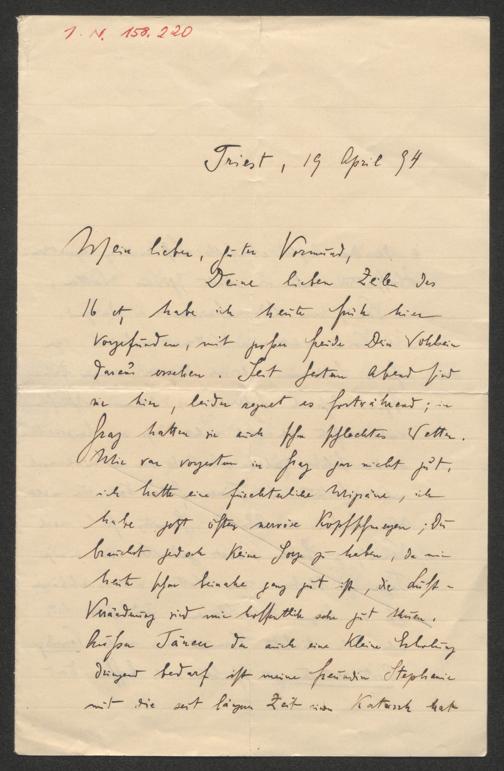 I. N. 158.220
Triest, 19 April 94
Mein lieber, guter Vormund,
Deine lieben Zeilen des
16 ct, habe ich heute früh hier
vorgefunden, mit großer Freude Dein Wohlsein
daraus ersehen. Seit gestern Abend sind
wir hier, leider regnet es fortwährend; in
Graz hatten wir auch schon schlechtes Wetter.
Mir war vorgestern in Graz gar nicht gut,
ich hatte eine fürchterliche Migräne, ich
habe jetzt öfters nervöse Kopfschmerzen; Du
brauchst jedoch keine Sorge zu haben, da mir
heute schon beinahe ganz gut ist, die Luft-
Veränderung wird mir hoffentlich sehr gut thuen.
Außer der auch eine kleine Erholung
dringend bedarf ist meine Freundin Stephanie
mit die seit längerer Zeit einen Katarrh hat